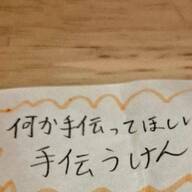 何か手伝ってほしい
手伝うけん